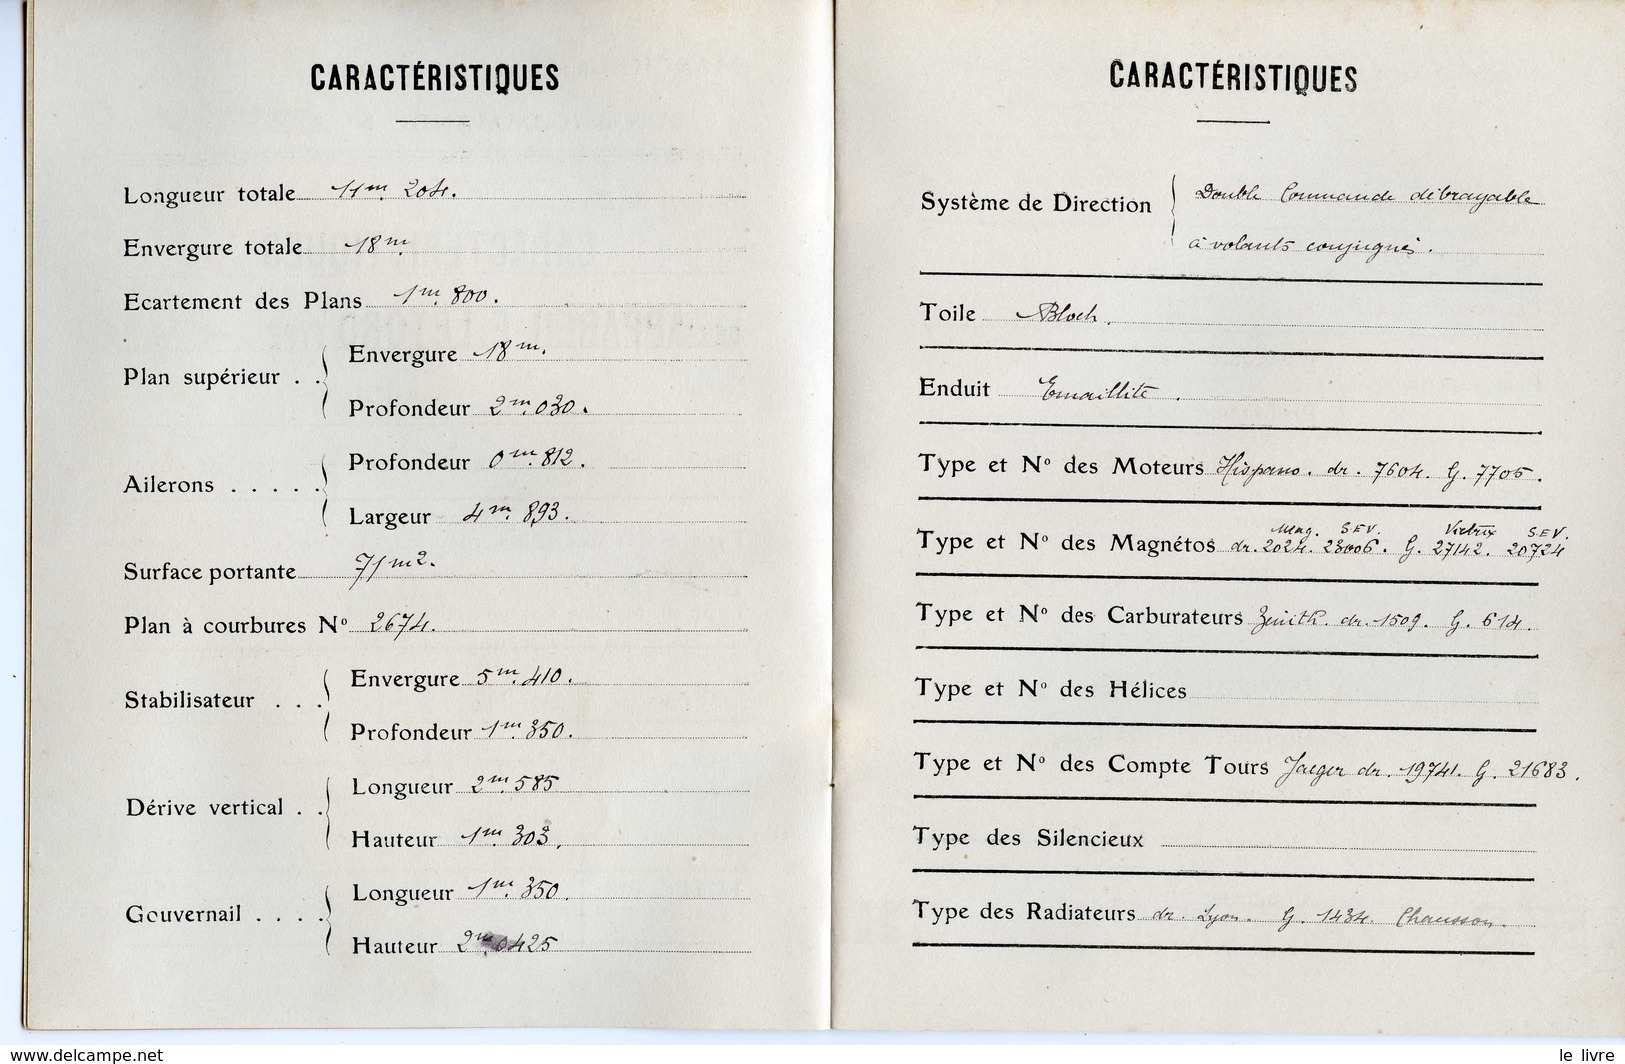 CARACTÉRISTIQUES
Longueur totale 11m. 204.
Envergure totale 18m.
Ecartement des Plans 1m. 800.
Plan supérieur . .
Envergure 18m.
Profondeur 2m. 030.
Ailerons . . . . .
Profondeur 0m. 812.
Largeur 4m. 893.
Surface portante 71m2.
Plan à courbures No 2674.
Stabilisateur . . .
Envergure 5m. 410.
Profondeur 1m. 350.
Dérive vertical . .
Longueur 2m. 585
Hauteur 1m. 303.
Gouvernail . . . .
Longueur 1m. 350.
Hauteur 2m. 0425
CARACTÉRISTIQUES
Système de Direction
Double Commande débrayable
à volants conjugués.
Toile Bloch.
Enduit Emaillite.
Type et No des Moteurs Hispano. dr. 7604. G. 7705.
Mag. S.E.V. Victrix S.E.V.
Type et No des Magnétos dr. 2024. 23006. G. 27142. 20724
Type et No des Carburateurs Zénith. dr. 1509. G. 614.
Type et No des Hélices
Type et No des Compte Tours Jaeger dr. 19741. G. 21683.
Type des Silencieux
Type des Radiateurs dr. Lyon. G. 1434. Chausson.
www.delcampe.net
le livre